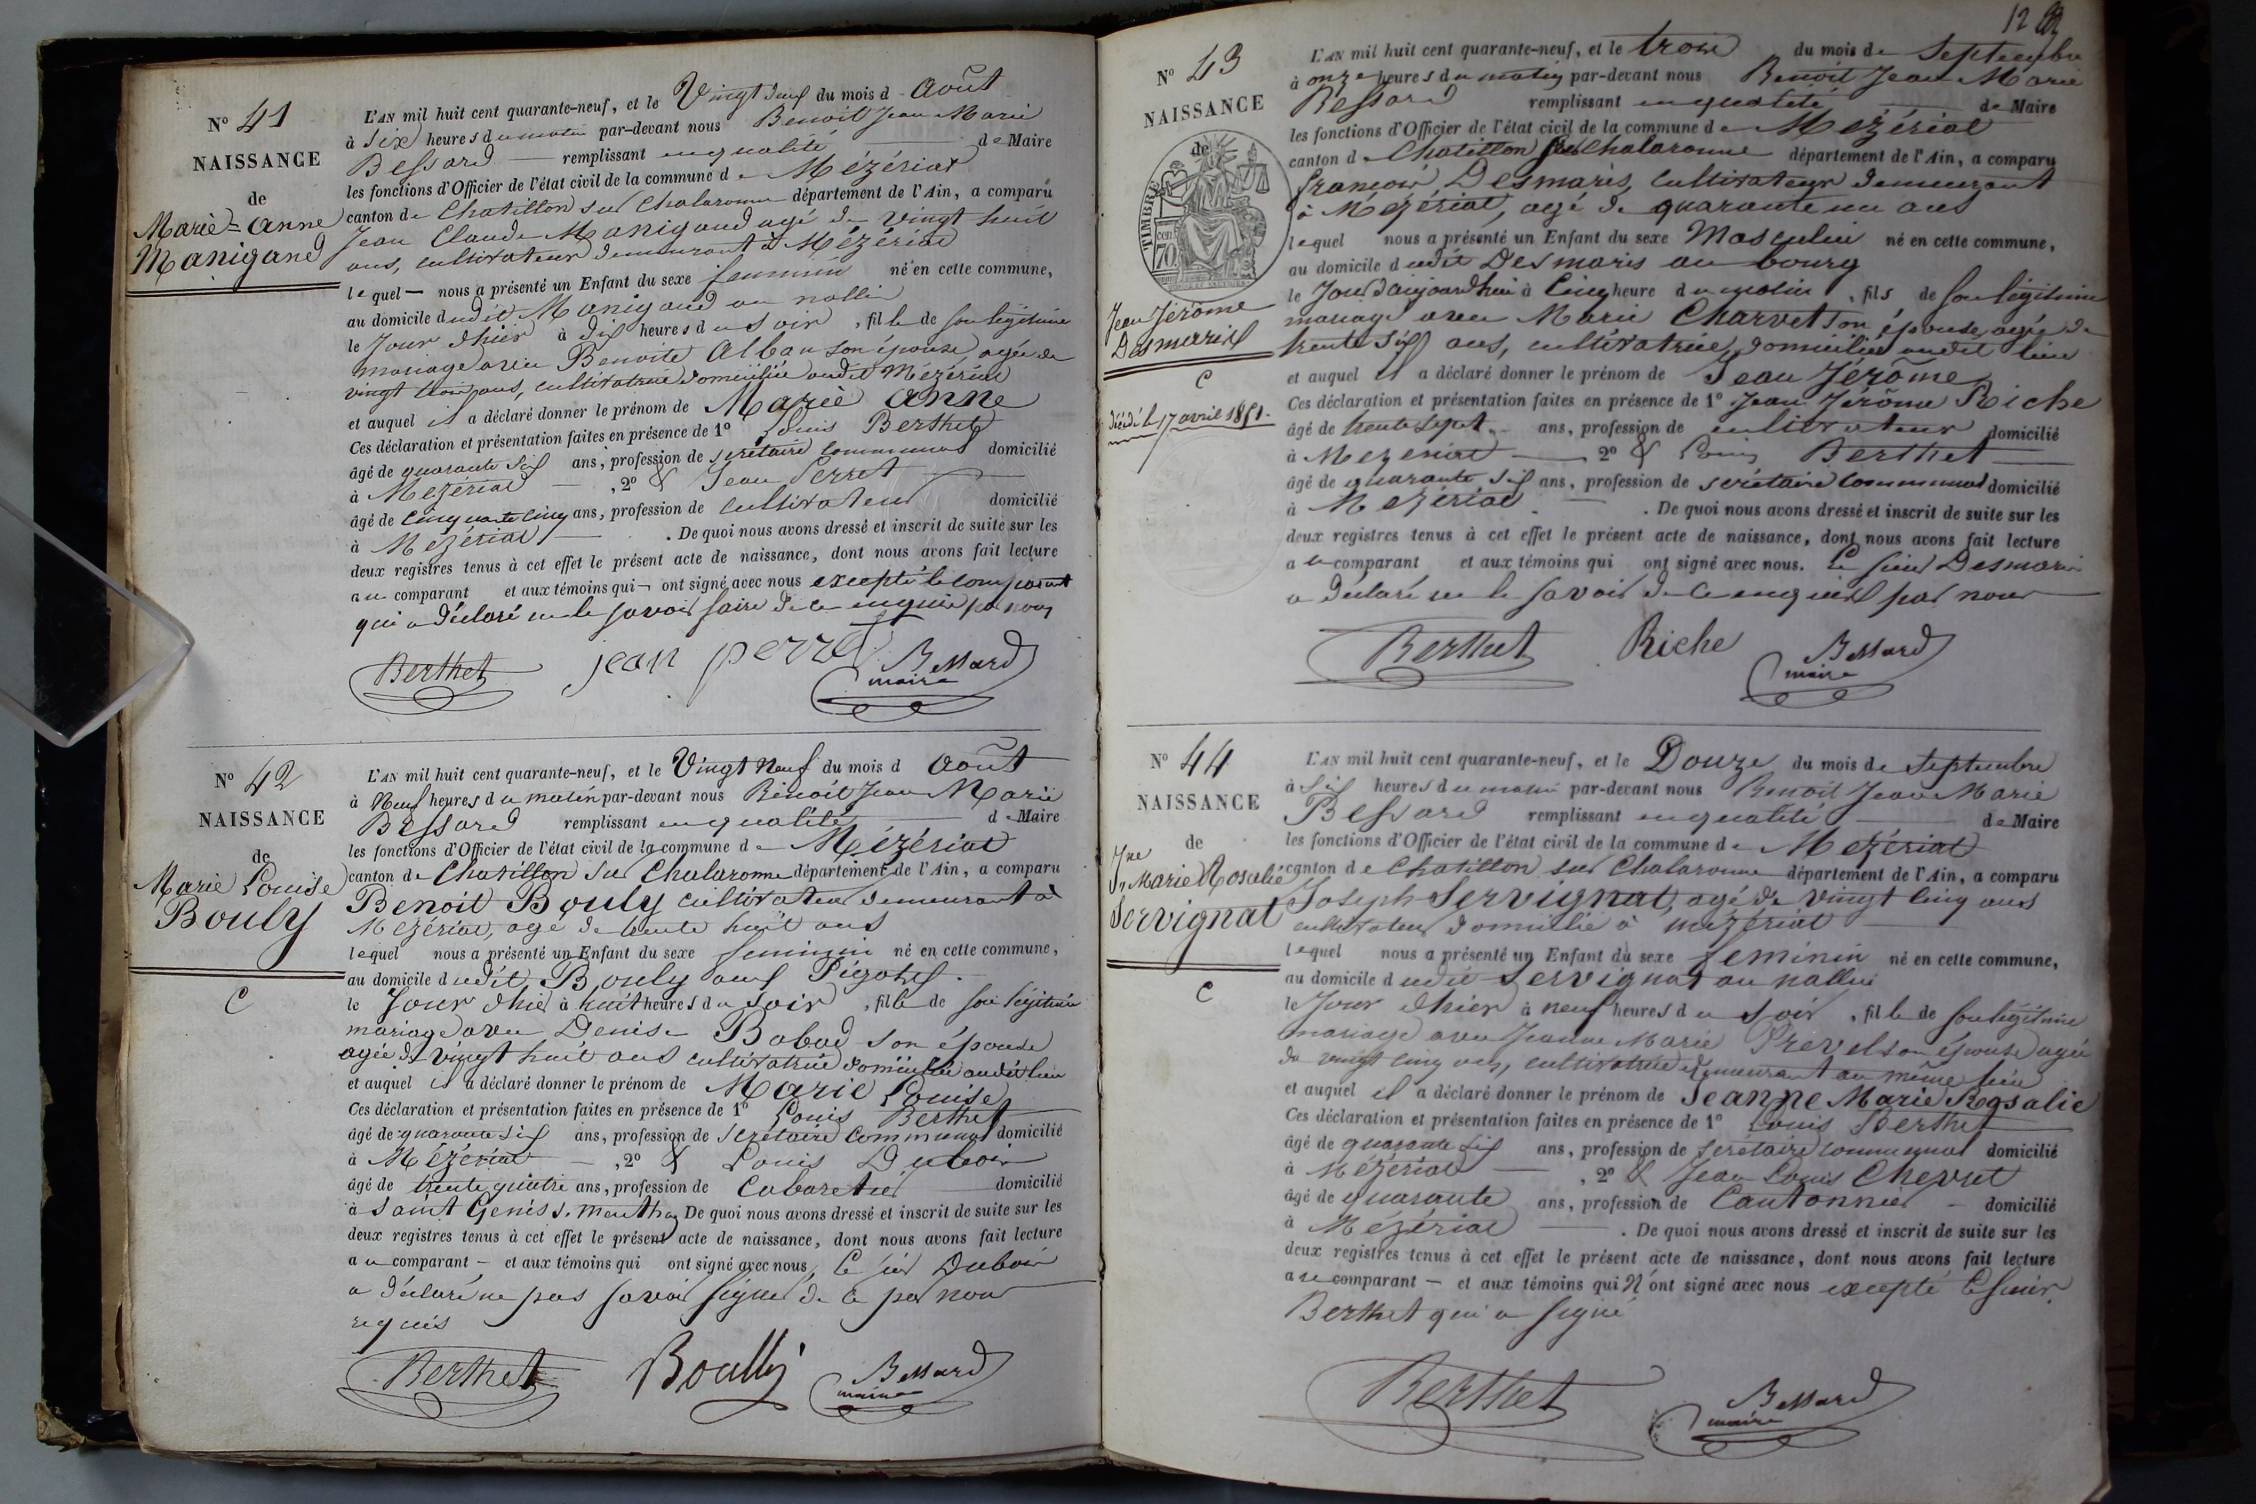 N° 41
NAISSANCE
de
Marie-Anne
Manigand
L'AN mil huit cent quarante-neuf, et le Vingt du mois d Août
à Six heures du matin par-devant nous Benoit Jean Marie
Bessard remplissant en qualité de Maire
les fonctions d'Officier de l'état civil de la commune de Mézériat
canton de Chatillon sur Chalaronne département de l'Ain, a comparu
Jean Claude Manigand agé de vingt huit
ans, cultivateur demeurant à Mézériat
lequel nous a présenté un Enfant du sexe feminin né en cette commune,
au domicile dudit Manigand au
le Jour d'hier à dix heures du soir, fille de son légitime
mariage avec Benoite Alban son épouse, agée de
vingt trois ans, cultivatrice domiciliée audit Mézériat
et auquel il a déclaré donner le prénom de Marie Anne
Ces déclaration et présentation faites en présence de 1° Louis Berthet
âgé de quarante six ans, profession de secrétaire communal domicilié
à Mézériat, 2° & Jean Perret
âgé de cinquante cinq ans, profession de cultivateur domicilié
à Mézériat. De quoi nous avons dressé et inscrit de suite sur les
deux registres tenus à cet effet le présent acte de naissance, dont nous avons fait lecture
au comparant et aux témoins qui ont signé avec nous excepté le comparant
qui a déclaré ne le savoir faire de ce enquis par nous
Berthet jean perret Bessard
maire
N° 42
NAISSANCE
de
Marie Louise
Bouly
C
L'AN mil huit cent quarante-neuf, et le Vingt Neuf du mois d Août
à Neuf heures du matin par-devant nous Benoit Jean Marie
Bessard remplissant en qualité de Maire
les fonctions d'Officier de l'état civil de la commune de Mézériat
canton de Chatillon sur Chalaronne département de l'Ain, a comparu
Benoit Bouly cultivateur demeurant à
Mézériat, agé de trente huit ans
lequel nous a présenté un Enfant du sexe feminin né en cette commune,
au domicile dudit Bouly aux
le Jour d'hier à huit heures du soir, fille de son légitime
mariage avec Denise Bobad son épouse
agée de vingt huit ans cultivatrice domiciliée audit lieu
et auquel il a déclaré donner le prénom de Marie Louise
Ces déclaration et présentation faites en présence de 1° Louis Berthet
âgé de quarante six ans, profession de secrétaire communal domicilié
à Mézériat, 2° & Louis Dubois
âgé de trente quatre ans, profession de Cabaretier domicilié
à Saint Genis s. menthon De quoi nous avons dressé et inscrit de suite sur les
deux registres tenus à cet effet le présent acte de naissance, dont nous avons fait lecture
au comparant et aux témoins qui ont signé avec nous, le sieur Dubois
a déclaré ne pas savoir signer de ce par nous
requis
Berthet Boully Bessard
maire
12
N° 43
NAISSANCE
de
TIMBRE
70 cen
Jean Jérome
Desmaris
C
décédé le 17 avril 1851.
L'AN mil huit cent quarante-neuf, et le trois du mois de Septembre
à onze heures du matin par-devant nous Benoit Jean Marie
Bessard remplissant en qualité de Maire
les fonctions d'Officier de l'état civil de la commune de Mézériat
canton de Chatillon sur Chalaronne département de l'Ain, a comparu
françois Desmaris, cultivateur demeurant
à Mézériat, agé de quarante un ans
lequel nous a présenté un Enfant du sexe Masculin né en cette commune,
au domicile dudit Desmaris au bourg
le Jour d'aujourd'hui à Cinq heure du matin, fils de son légitime
mariage avec Marie Charvet son épouse, agée de
trente six ans, cultivatrice, domiciliée audit lieu
et auquel il a déclaré donner le prénom de Jean Jérôme
Ces déclaration et présentation faites en présence de 1° Jean Jérôme Riche
âgé de trente sept ans, profession de cultivateur domicilié
à Mézériat 2° & Louis Berthet
âgé de quarante six ans, profession de secrétaire communal domicilié
à Mézériat. De quoi nous avons dressé et inscrit de suite sur les
deux registres tenus à cet effet le présent acte de naissance, dont nous avons fait lecture
au comparant et aux témoins qui ont signé avec nous. Le sieur Desmaris
a déclaré ne le savoir de ce enquis par nous
Berthet Riche Bessard
maire
N° 44
NAISSANCE
de
Jne Marie Rosalie
Servignat
C
L'AN mil huit cent quarante-neuf, et le Douze du mois de Septembre
à six heures du matin par-devant nous Benoit Jean Marie
Bessard remplissant en qualité de Maire
les fonctions d'Officier de l'état civil de la commune de Mézériat
canton de Chatillon sur Chalaronne département de l'Ain, a comparu
Joseph Servignat, agé de vingt cinq ans
cultivateur domicilié à mézériat
lequel nous a présenté un Enfant du sexe feminin né en cette commune,
au domicile dudit Servignat au
le Jour d'hier à neuf heures du soir, fille de son légitime
mariage avec Jeanne Marie Prevel son épouse agée
de vingt cinq ans, cultivatrice demeurant au même lieu
et auquel il a déclaré donner le prénom de Jeanne Marie Rosalie
Ces déclaration et présentation faites en présence de 1° Louis Berthet
âgé de quarante six ans, profession de secrétaire communal domicilié
à Mézériat, 2° & Jean Louis Chevret
âgé de quarante ans, profession de Cantonnier domicilié
à Mézériat. De quoi nous avons dressé et inscrit de suite sur les
deux registres tenus à cet effet le présent acte de naissance, dont nous avons fait lecture
au comparant et aux témoins qui N'ont signé avec nous excepté le sieur
Berthet qui a signé
Berthet Bessard
maire